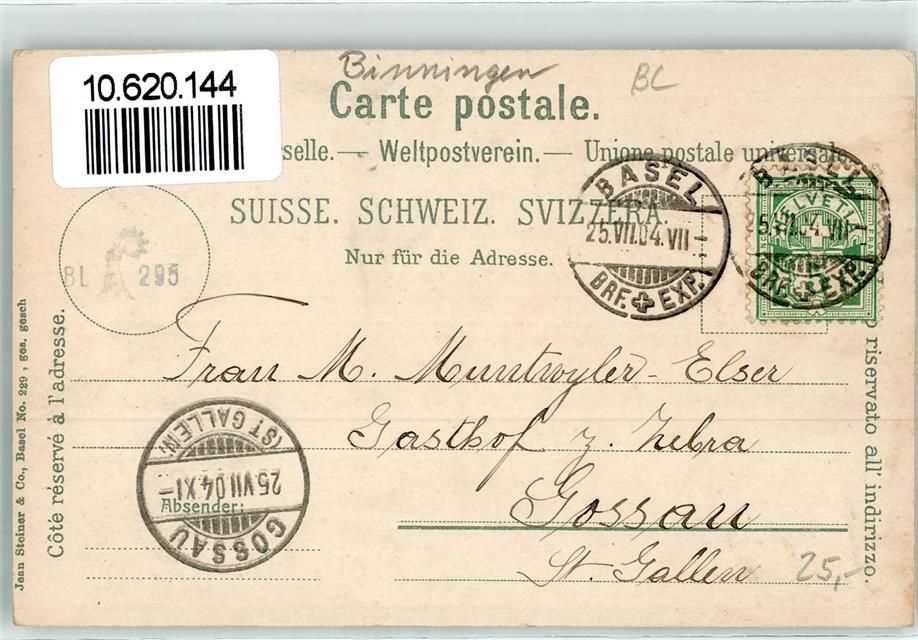 10.620.144
Binningen
BL
Carte postale.
selle.— Weltpostverein.— Unione postale universale
SUISSE. SCHWEIZ. SVIZZERA.
Nur für die Adresse.
BASEL
25.VII.04.VII—
BRF. EXP.
BASEL
HELVETIA
04.VII—
BRF. EXP.
BL 295
Frau M. Muntwyler-Elser
Gasthof z. Zebra
Gossau
St. Gallen
25,-
Absender:
GOSSAU
25 VII 04 XI—
(ST GALLEN)
Côté réservé à l'adresse.
Jean Steiner & Co., Basel No. 229, ges. gesch
riservato all' indirizzo.